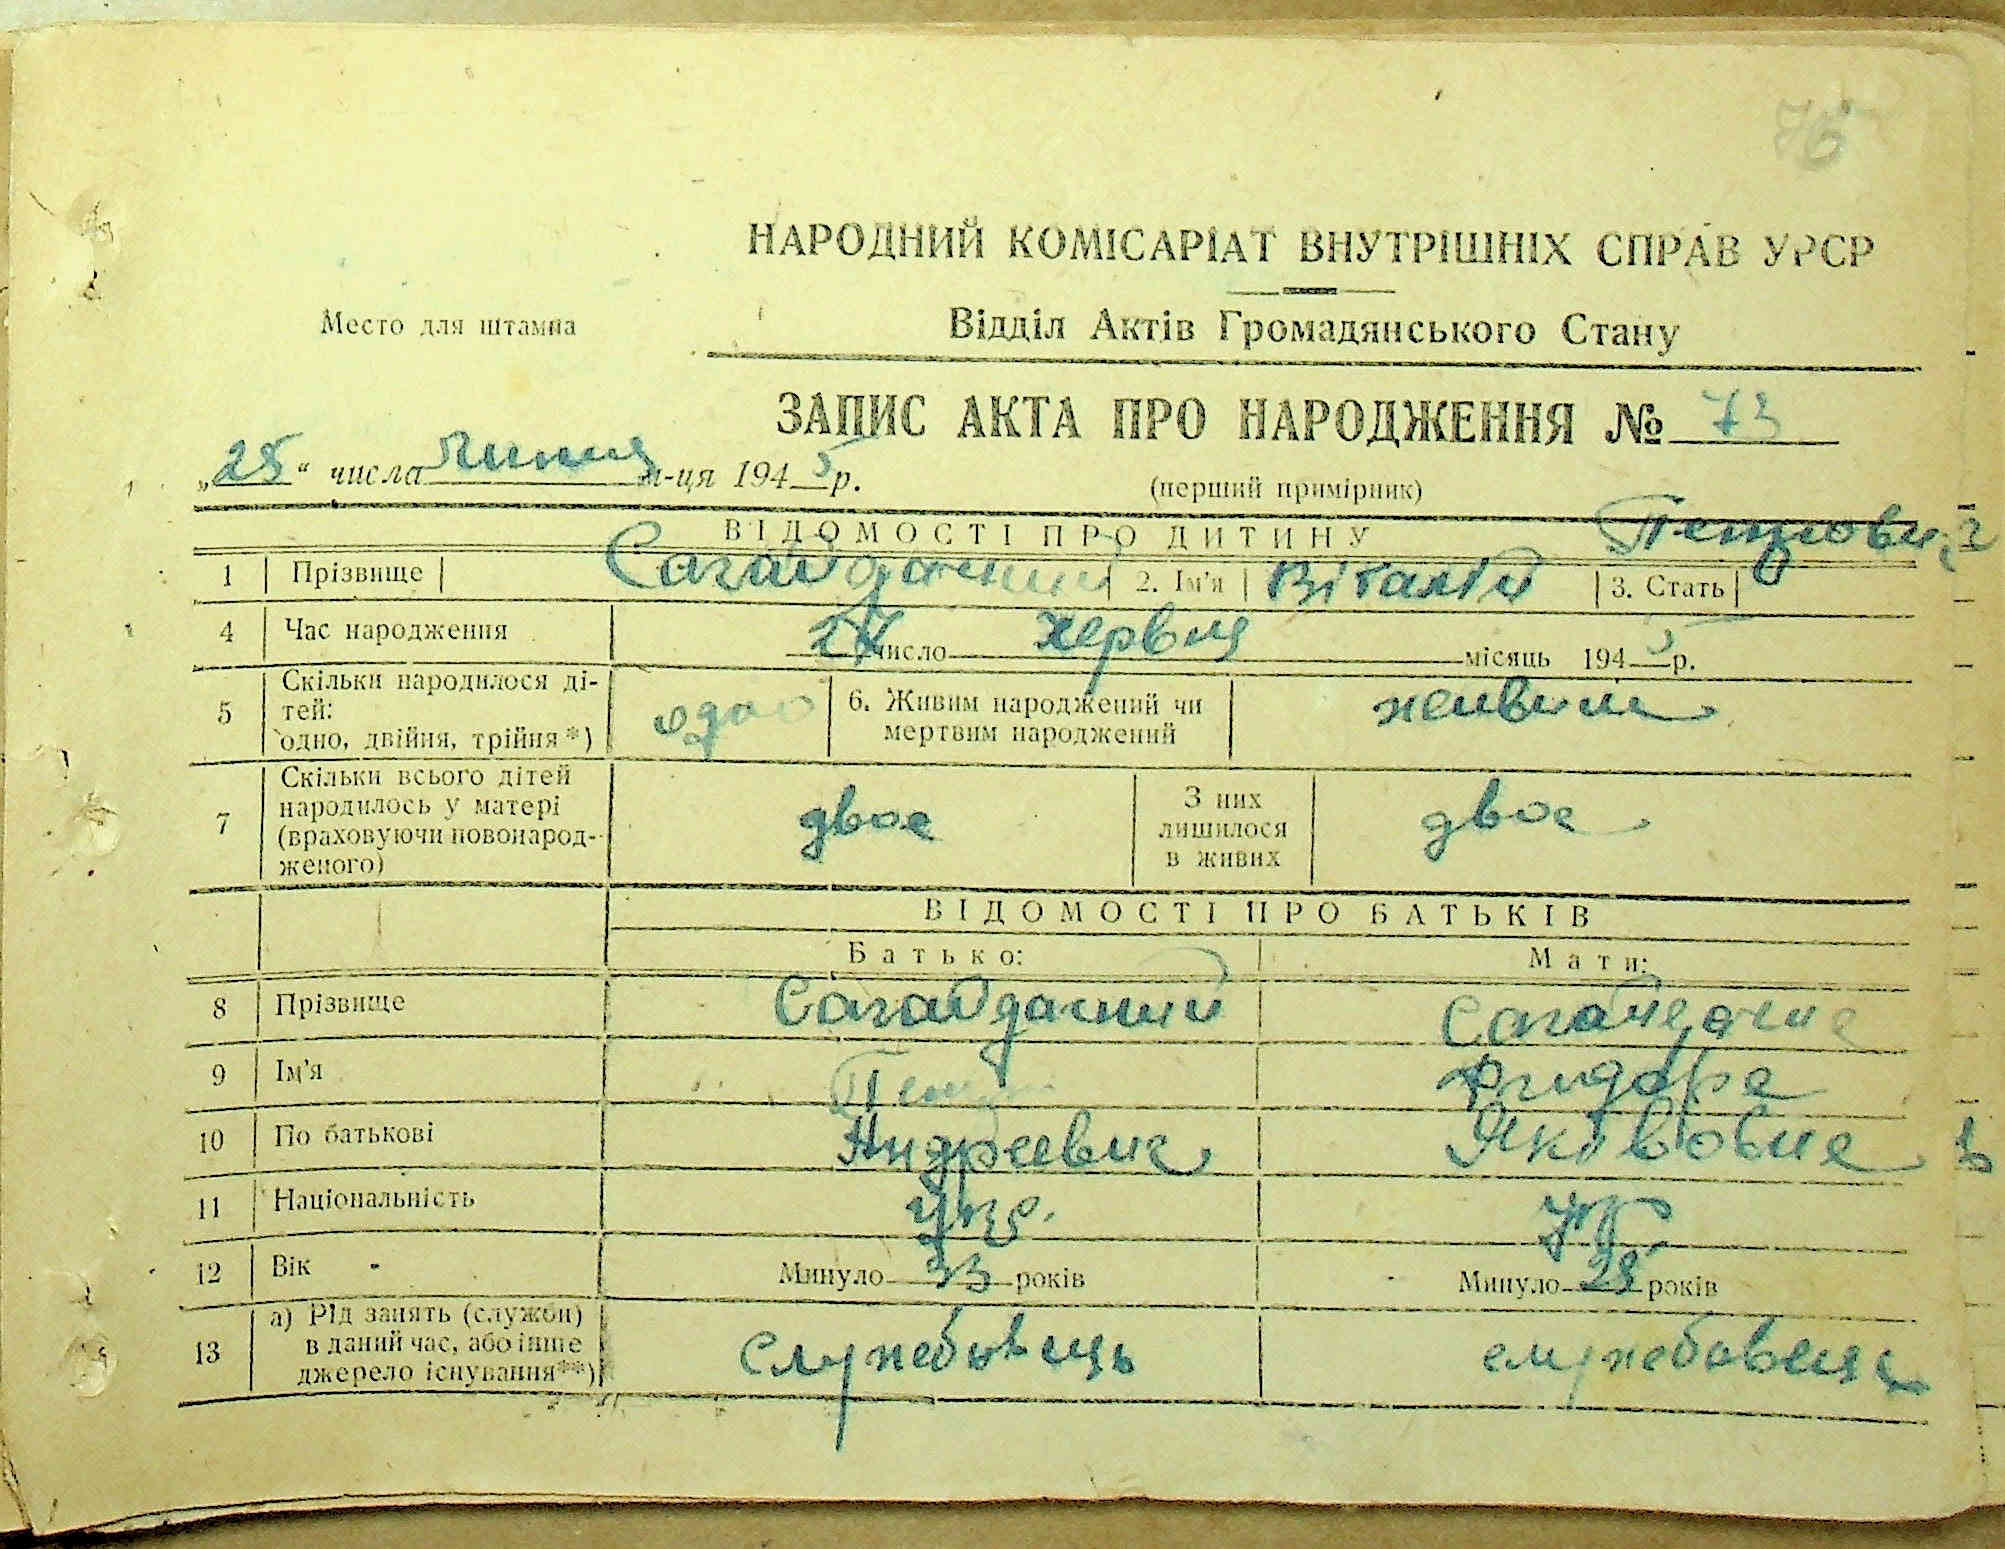 76
НАРОДНИЙ КОМІСАРІАТ ВНУТРІШНІХ СПРАВ УРСР
Место для штампа
Відділ Актів Громадянського Стану
ЗАПИС АКТА ПРО НАРОДЖЕННЯ № 73
„25“ числа Липня м-ця 1945 р.
(перший примірник)
ВІДОМОСТІ ПРО ДИТИНУ
Петрович
1 Прізвище Сагайдачний 2. Ім'я Віталій 3. Стать
4 Час народження число червня місяць 1945 р.
5 Скільки народилося ді-
тей:
одно, двійня, трійня *) одно 6. Живим народжений чи
мертвим народжений живим
7 Скільки всього дітей
народилось у матері
(враховуючи новонарод-
женого) двоє З них
лишилося
в живих двоє
ВІДОМОСТІ ПРО БАТЬКІВ
Батько: Мати:
8 Прізвище Сагайдачний Сагайдачна
9 Ім'я Петро
10 По батькові Андреевич Якововна
11 Національність Укр. Укр.
12 Вік Минуло 33 років Минуло 28 років
13 а) Рід занять (служби)
в даний час, або інше
джерело існування**) службовець службовець